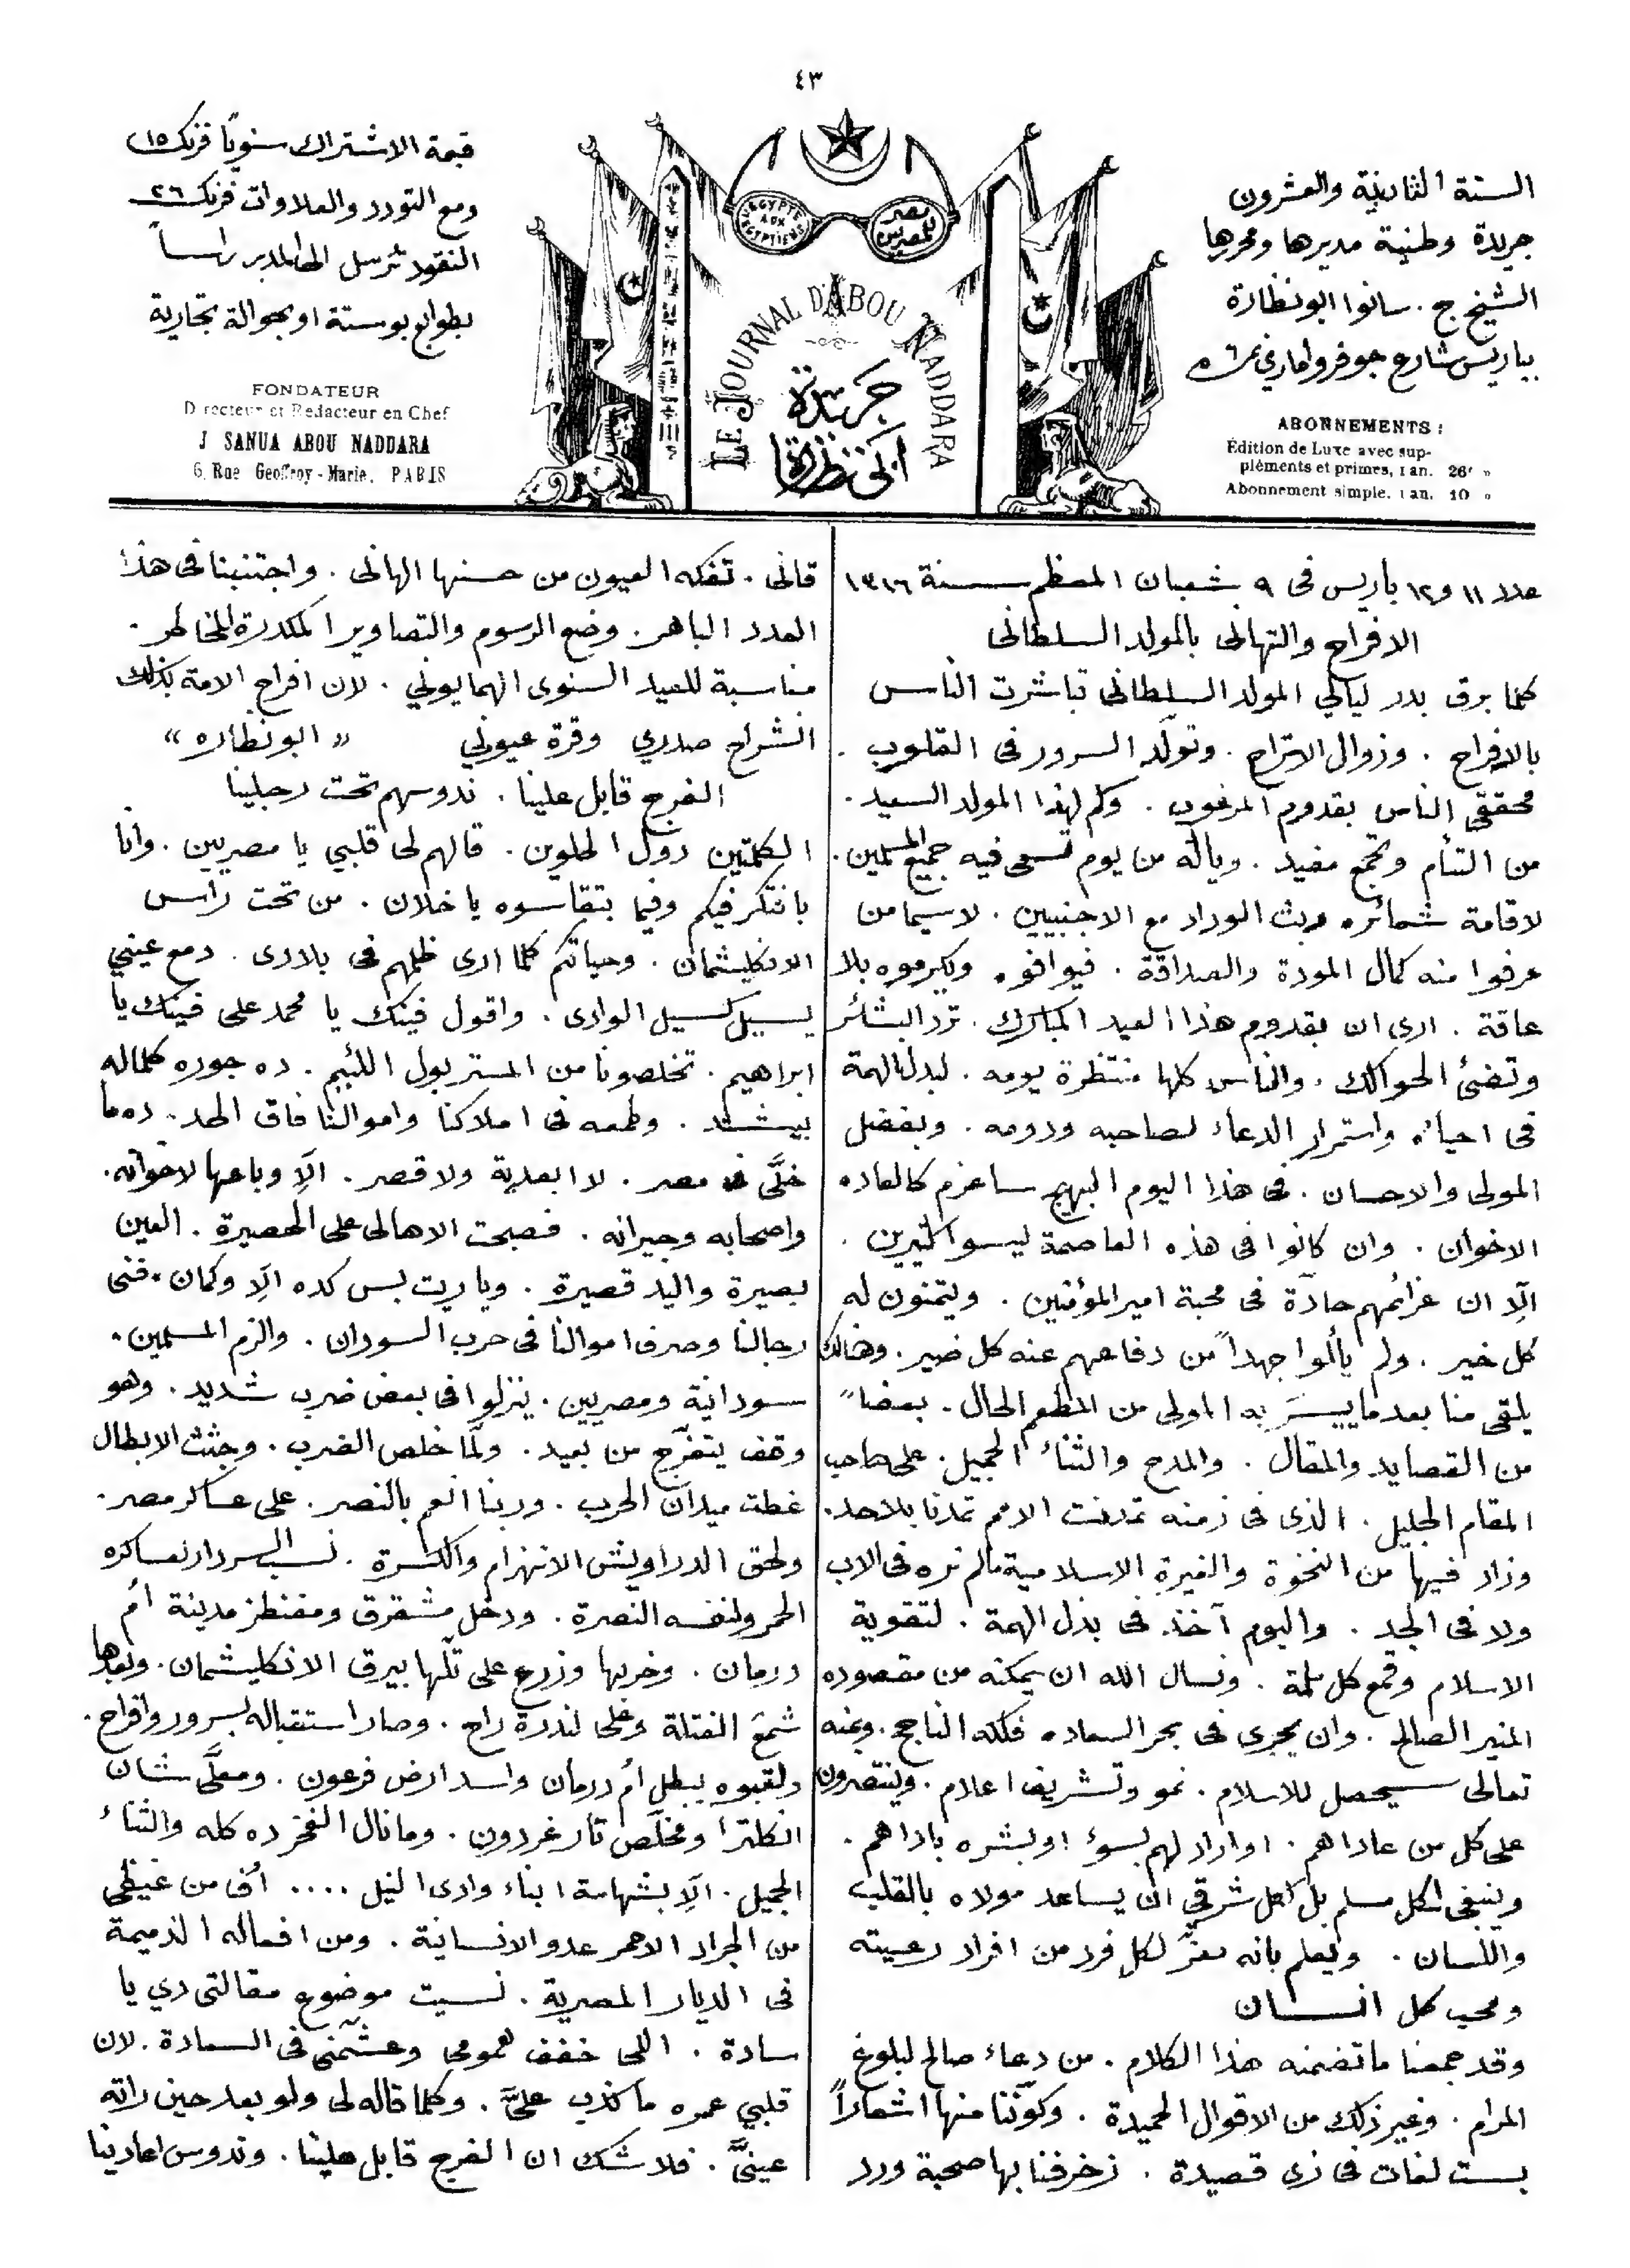 ٤٣
السنة الثانية والعشرون
جريدة وطنية مديرها ومحررها
الشيخ ج. سانوا ابو نظارة
بباريس شارع جوفروا ماري نمرة ٦
ABONNEMENTS :
Édition de Luxe avec sup-
pléments et primes, 1 an. 26f »
Abonnement simple, 1 an. 10 »
L'EGYPTE AUX EGYPTIENS
مصر للمصريين
LE JOURNAL D'ABOU NADDARA
جريدة
ابى نظارة
قيمة الاشتراك سنويًا فرنك ١٥
ومع التودد والعلاوات فرنك ٢٦
النقود ترسل الى المدير راساً
بطوابع بوستة او بحوالة تجارية
FONDATEUR
Directeur et Redacteur en Chef
J SANUA ABOU NADDARA
6, Rue Geoffroy-Marie, PARIS
عدد ١١ و١٢ باريس فى ٩ شعبان المعظم سنة ١٣١٦
الافراح والتهانى بالمولد السلطانى
كلما برق بدر ليالي المولد السلطانى تباشرت الناس
بالافراح . وزوال الاتراح . وتولّد السرور فى القلوب .
محققى الناس بقدوم المرغوب . وكم لهذا المولد السعيد .
من التأم وتجمع مفيد . وياله من يوم تسعى فيه جميع المسلمين .
لاقامة شعائره وبث الوداد مع الاجنبيين . لاسيما من
عرفوا منه كمال المودة والصداقة . فيوافوه ويكرموه بلا
عاقة . ارى ان بقدوم هذا العيد المبارك . ترد البشائر
وتضئ الحوالك . والناس كلها منتظرة يومه . لبذل الهمة
فى احيائه واستمرار الدعاء لصاحبه ودومه . وبفضل
المولى والاحسان . فى هذا اليوم البهيج ساعزم كالعاده
الاخوان . وان كانوا فى هذه العاصمة ليسوا كثيرين .
الّا ان عزائمهم حادّة فى محبة امير المؤمنين . ويتمنون له
كل خير . ولم يألوا جهداً من دفاعهم عنه كل ضير . وهنالك
يلقى منا بعد ما ييسّر به المولى من المطعم الحال . بعضاً
من القصايد والمقال . والمدح والثناء الجميل . على صاحب
المقام الجليل . الذى فى زمنه تمدنت الامم تمدنا بلا حد .
وزاد فيها من النخوة والغيرة الاسلامية مالم نره فى الاب
ولا فى الجد . واليوم آخذ فى بذل الهمة . لتقوية
الاسلام وقمع كل ملمة . ونسال الله ان يمكنه من مقصوده
المنير الصالح . وان يجرى فى بحر السعاده فلكه الناجح . وبمنه
تعالى سيحصل للاسلام . نمو وتشريف اعلام . وينتصرون
على كل من عاداهم . او اراد لهم بسوء او بشره باداهم .
وينبغى لكل مسلم بل لكل شرقي ان يساعد مولاه بالقلب
واللسان . ويعلم بانه معزّ لكل فرد من افراد رعيته
ومحب كل انسان
وقد جمعنا ما تضمنه هذا الكلام . من دعاء صالح لبلوغ
المرام . وغير ذلك من الاقوال الحميدة . وكوّنّا منها اشعاراً
بست لغات فى زى قصيدة . زخرفنا بها صحبة ورد
قانى . تفكه العيون من حسنها الهانى . واجتنبنا فى هذا
العدد الباهر . وضع الرسوم والتصاوير المكدرة للخاطر .
مناسبة للعيد السنوى الهمايوني . لان افراح الامة بذلك
انشراح صدري وقرة عيوني « ابو نظاره »
الفرج قابل علينا . ندوسهم تحت رجلينا
الكلمتين دول الحلوين . قالهم لى قلبي يا مصريين . وانا
بافتكر فيكم وفيما بتقاسوه يا خلان . من تحت راس
الانكليشمان . وحياتكم كلما ارى ظلمهم فى بلادى . دمع عيني
يسيل كسيل الوادى . واقول فينك يا محمد على فينك يا
ابراهيم . تخلصونا من المستر بول اللئيم . ده جوره كلماله
بيشتد . وطمعه فى املاكنا واموالنا فاق الحد . ده ما
خلَّى فى مصر . لا ابعدية ولا قصر . الّا وباعها لاخوانه .
واصحابه وجيرانه . فصبحت الاهالى على الحصيرة . العين
بصيرة واليد قصيرة . ويا ريت بس كده الّا وكمان فنى
رجالنا وصرف اموالنا فى حرب السودان . والزم المسلمين .
سودانية ومصريين . ينزلوا فى بعض ضرب شديد . وهو
وقف يتفرّج من بعيد . ولمّا خلص الضرب . وجثث الابطال
غطت ميدان الحرب . وربنا انعم بالنصر . على عساكر مصر .
ولحق الدراويش الانهزام والكسرة . نسب السردار لعساكره
الحمر ولنفسه النصرة . ودخل مشقرق ومقنطز مدينة ام
درمان . وخربها وزرع على تلّها بيرق الانكليشمان . وبعدها
شمع الفتلة وعلى لندرة راح . وصار استقباله بسرور وافراح .
ولقبوه ببطل ام درمان واسد ارض فرعون . ومعلَّى شان
انكلترا ومخلّص تار غردون . وما نال الفخر ده كله والثناء
الجميل . الّا بشهامة ابناء وادى النيل .... أف من غيظى
من الجراد الاحمر عدو الانسانية . ومن افعاله الذميمة
فى الديار المصرية . نسيت موضوع مقالتى دي يا
سادة . اللى خفف همومى وعشّمنى فى السعادة . لان
قلبي عمره ما كذب علىَّ . وكلما قاله لى ولو بعد حين راته
عينىَّ . فلا شك ان الفرج قابل علينا . وندوس اعادينا